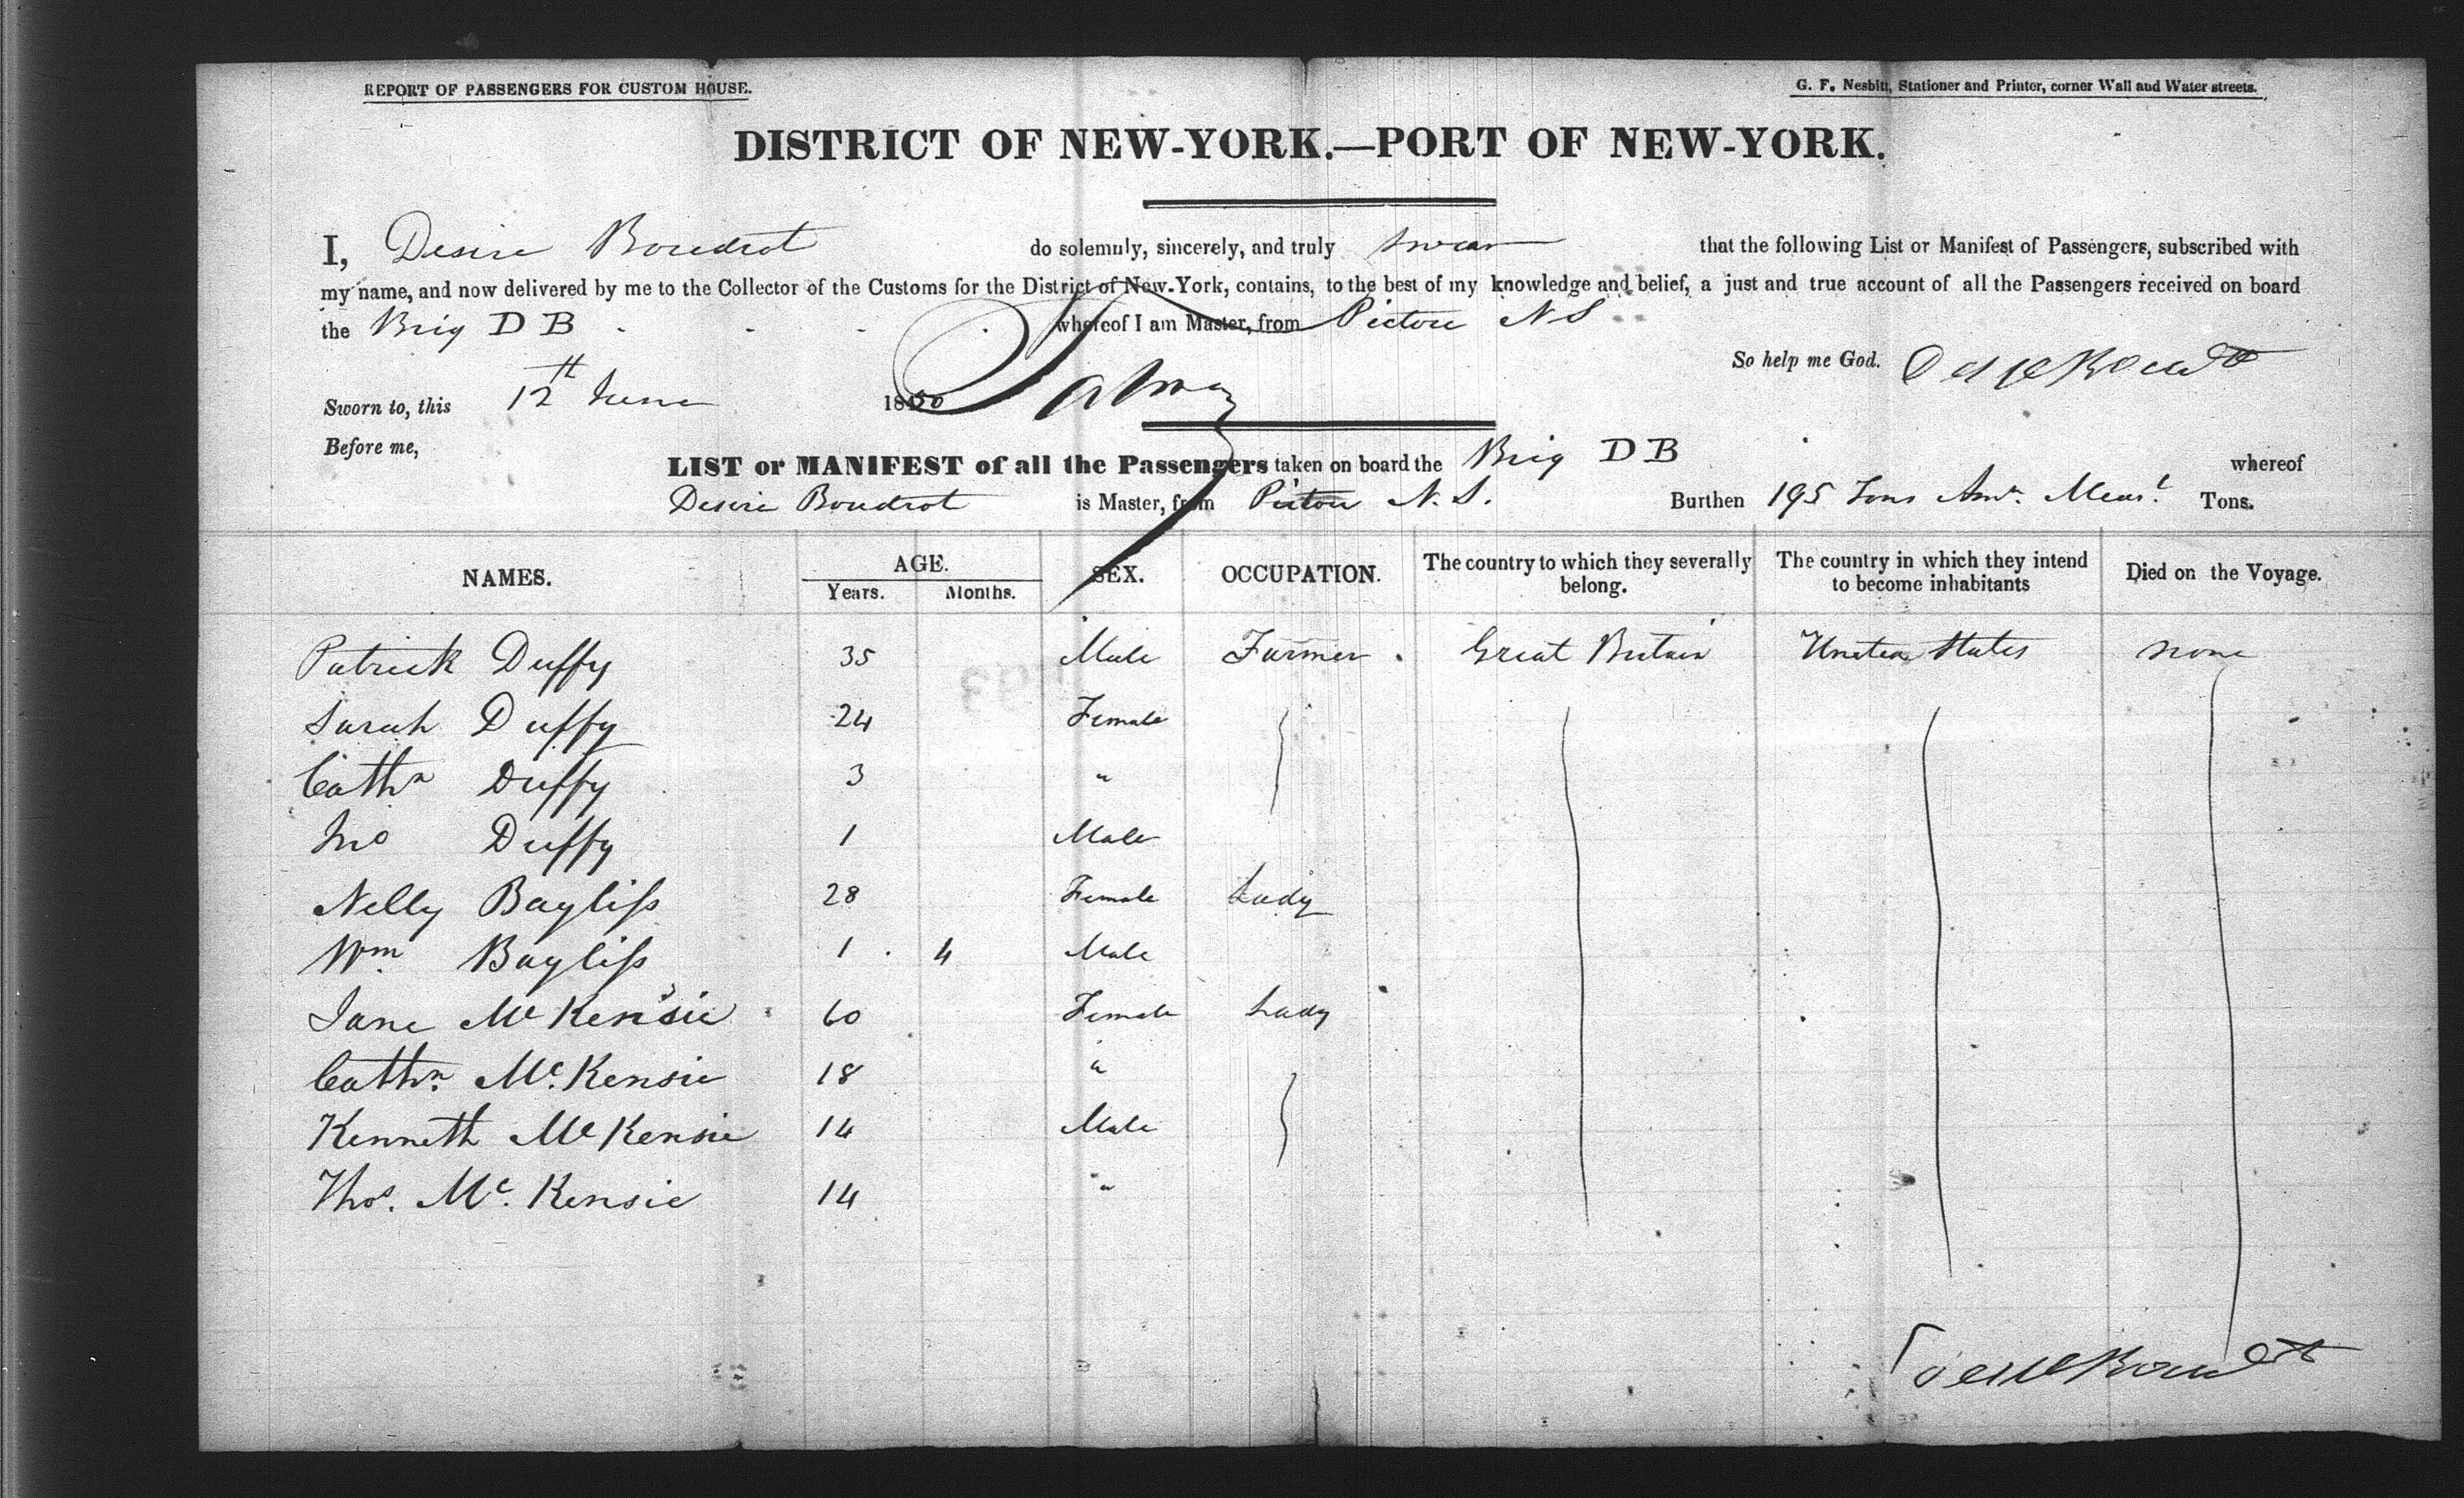 REPORT OF PASSENGERS FOR CUSTOM HOUSE.
G. F. Nesbitt, Stationer and Printer, corner Wall and Water streets.
DISTRICT OF NEW-YORK.—PORT OF NEW-YORK.
I, Desire Boudrot do solemnly, sincerely, and truly swear that the following List or Manifest of Passengers, subscribed with
my name, and now delivered by me to the Collector of the Customs for the District of New-York, contains, to the best of my knowledge and belief, a just and true account of all the Passengers received on board
the Brig D B whereof I am Master, from Pictou N S
So help me God.
Sworn to, this 12th June 1850
Before me,
LIST or MANIFEST of all the Passengers taken on board the Brig D B whereof
Desire Boudrot is Master, from Pictou N. S. Burthen 195 Tons Amn. Meast. Tons.
NAMES. AGE. Years. Months. SEX. OCCUPATION. The country to which they severally belong. The country in which they intend to become inhabitants Died on the Voyage.
Patrick Duffy 35 Male Farmer Great Britain United States none
Sarah Duffy 24 Female
Cathn Duffy 3 "
Jno Duffy 1 Male
Nelly Bayliss 28 Female Lady
Wm Bayliss 1 4 Male
Jane McKensie 60 Female Lady
Cathn. Mc.Kensie 18 "
Kenneth McKensie 14 Male
Thos. Mc. Kensie 14 "